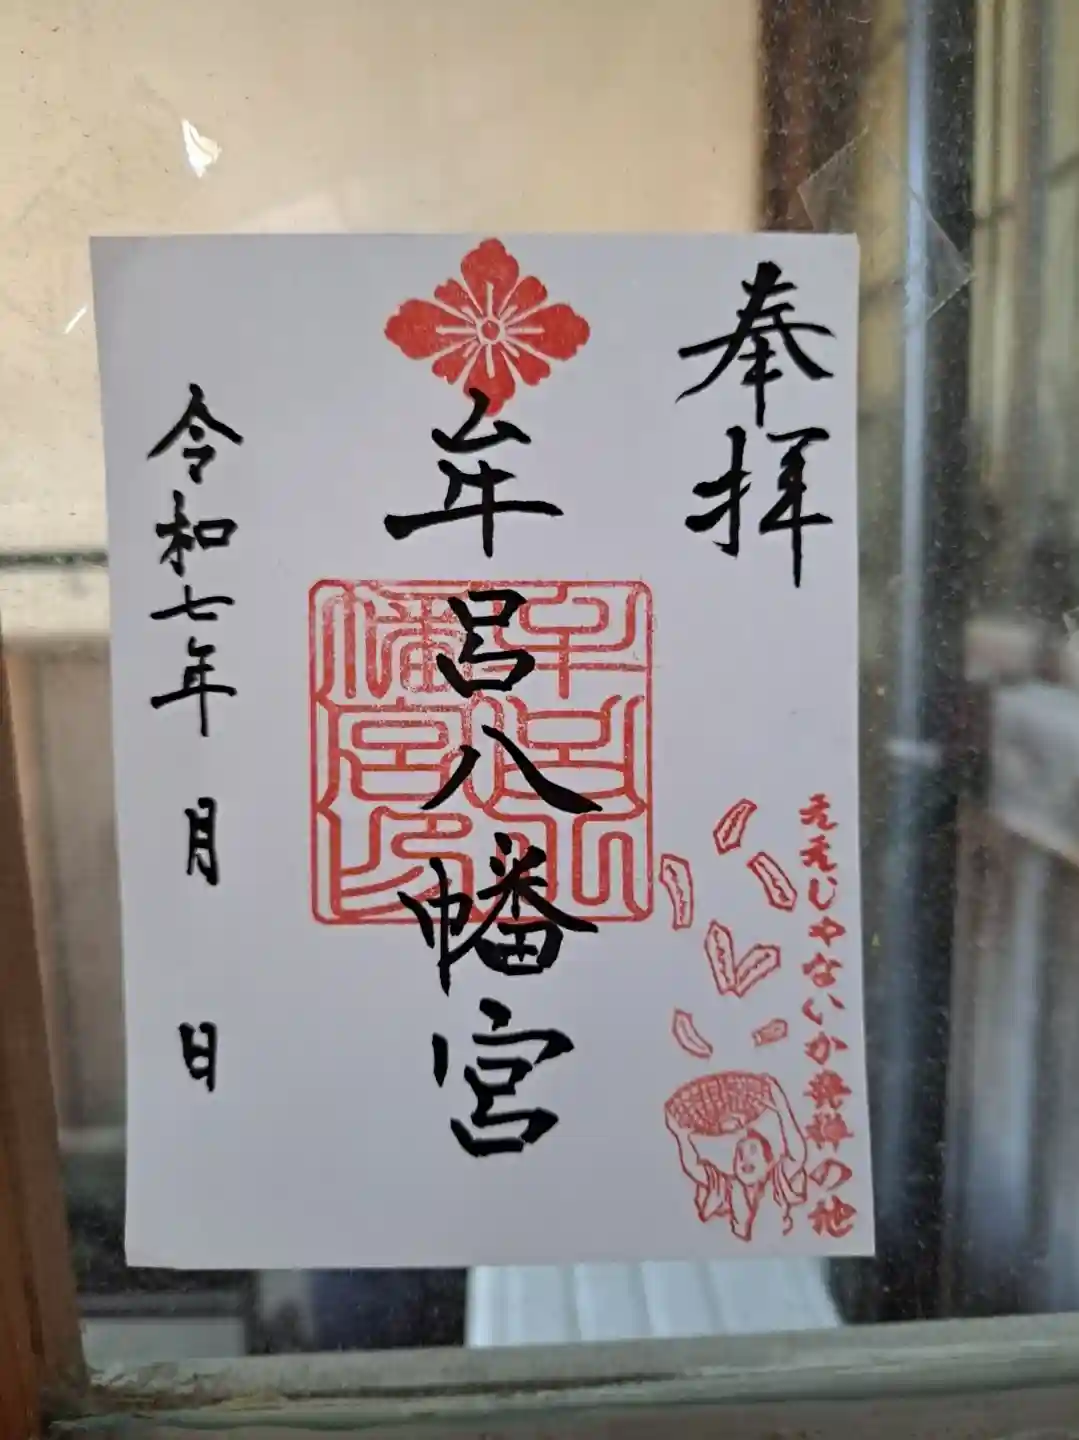 奉拝
牟呂八幡宮
令和七年 月 日
牟呂八幡宮印
ええじゃないか発祥の地